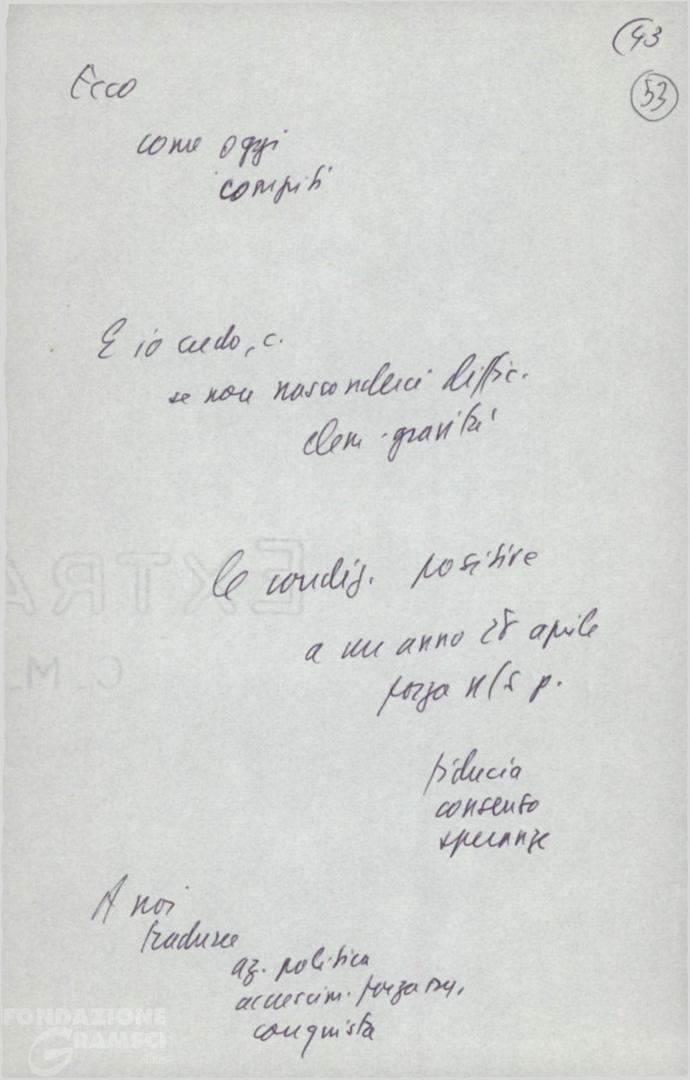 (43
53
Ecco
come oggi
compiti
E io credo, c.
se non nasconderci diffic.
elem. gravità
le condiz. positive
a un anno 28 aprile
forza n/s p.
fiducia
consenso
speranze
A noi
tradurre
az. politica
accrescim. forza
conquista
EXTRA
C.M.
FONDAZIONE
GRAMSCI